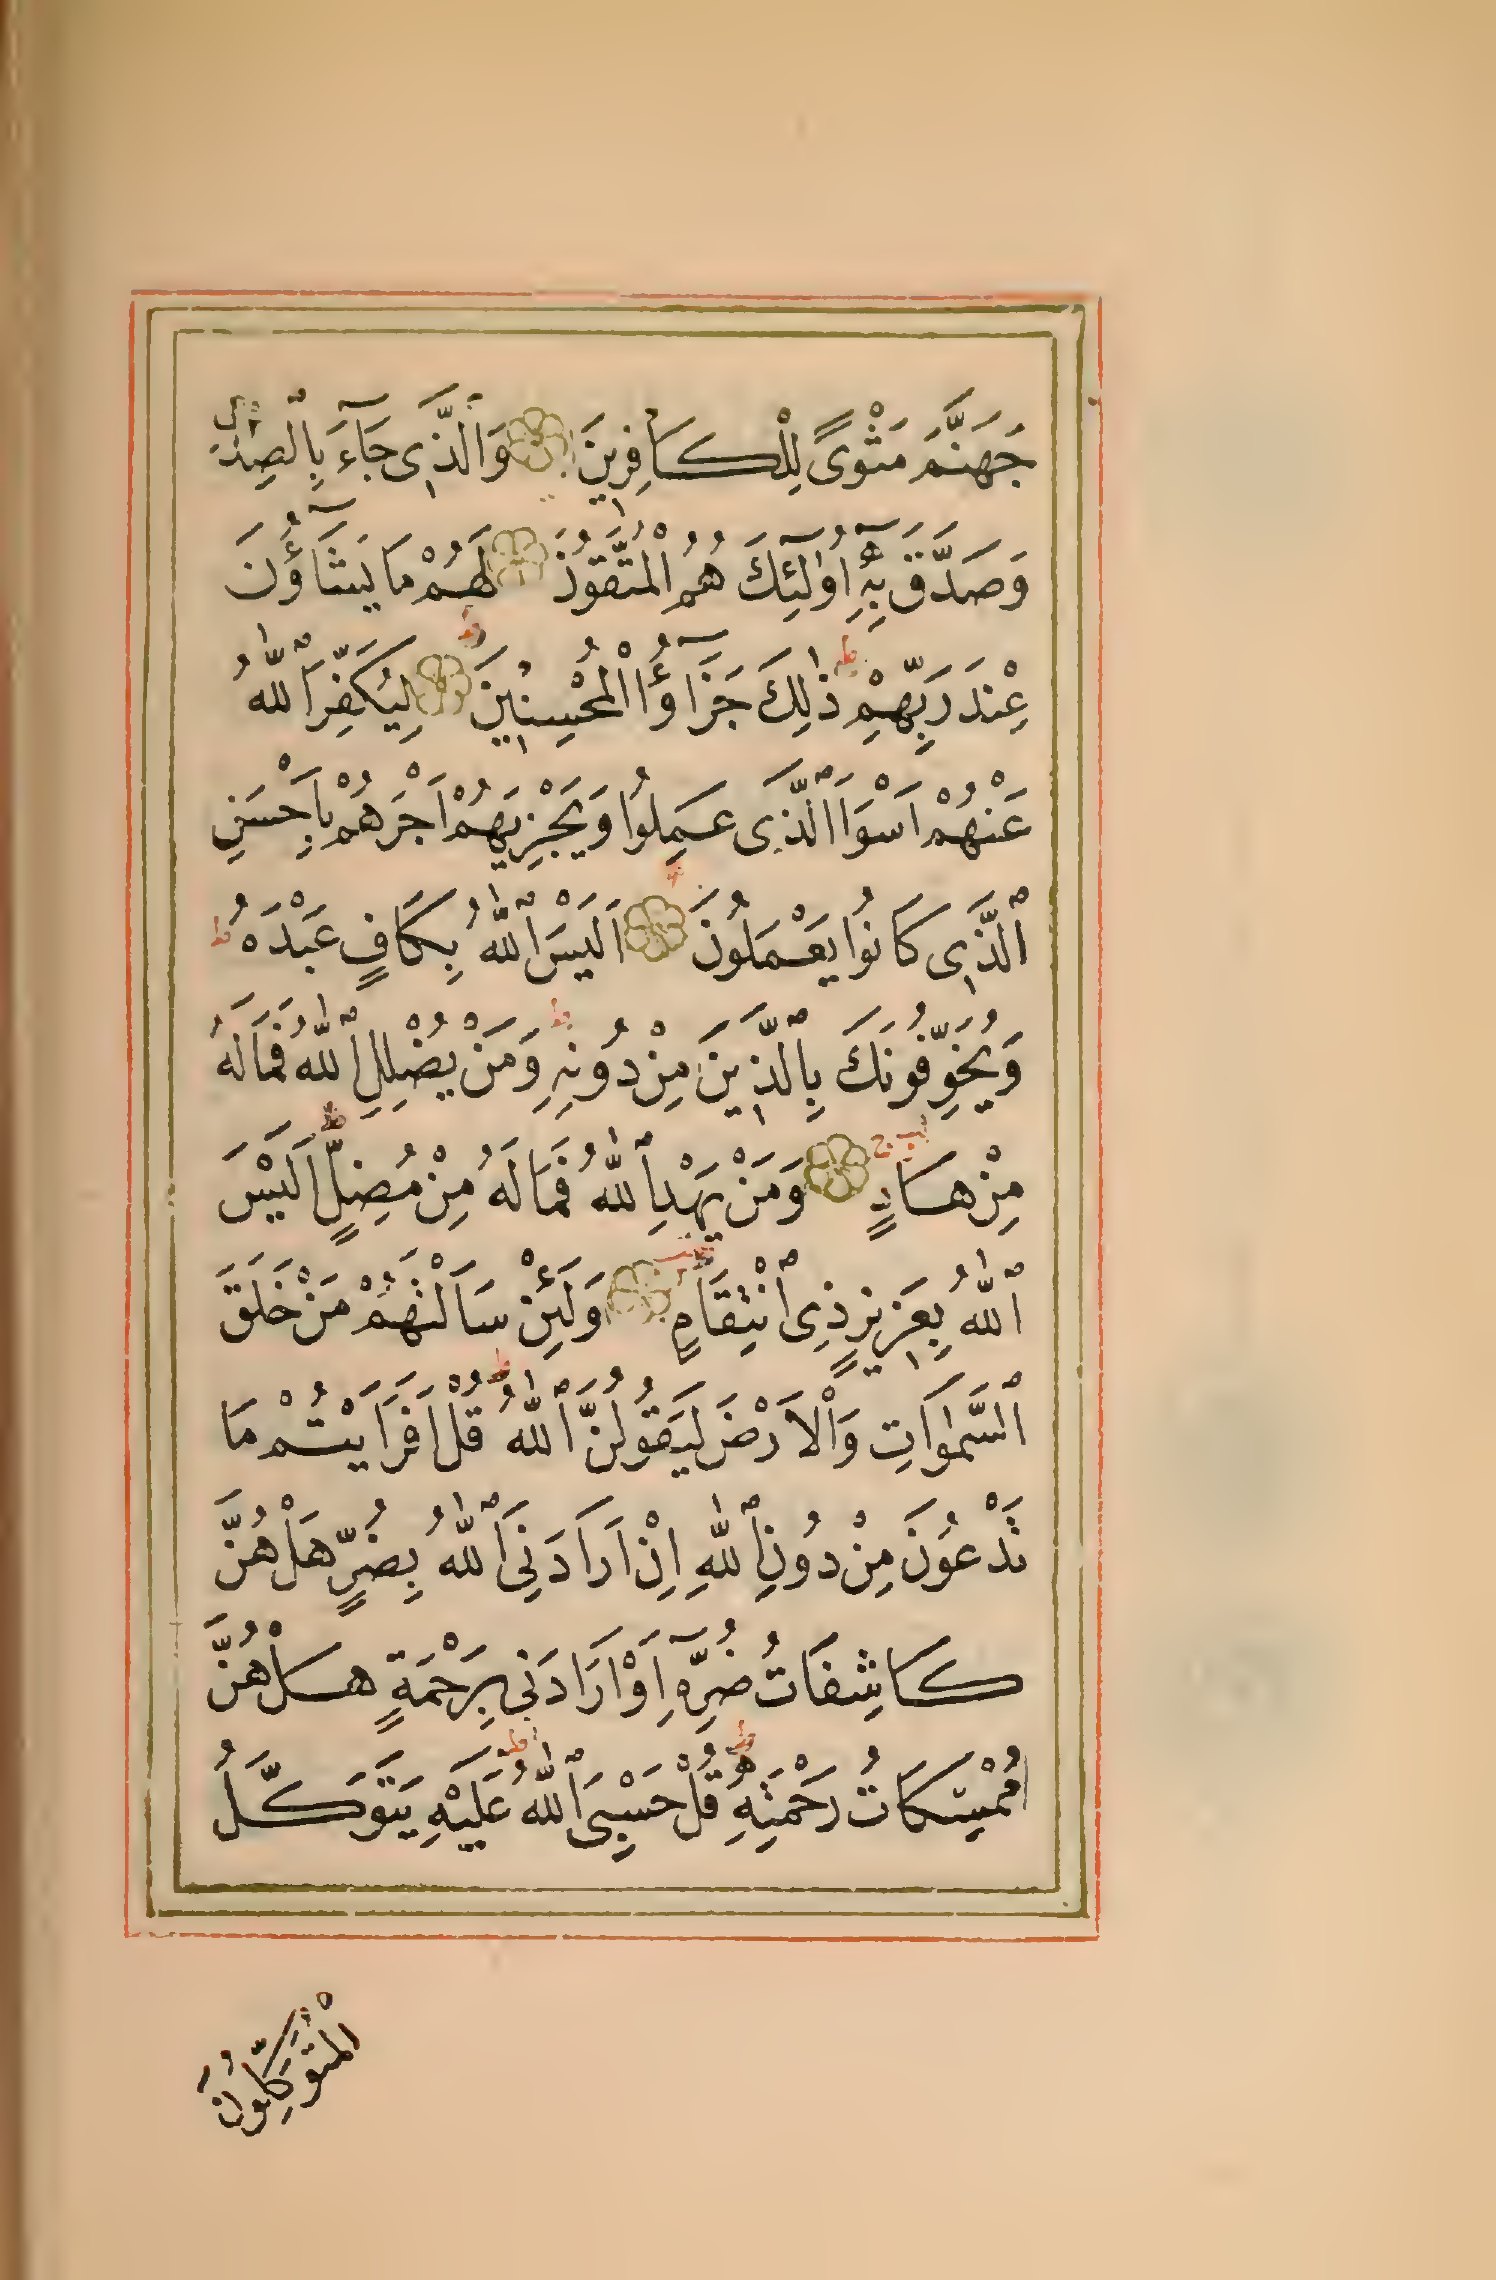 جَهَنَّمَ مَثْوًى لِلْكَافِرِينَ وَالَّذِى جَاءَ بِالصِّدْقِ
وَصَدَّقَ بِهِٓ اُولٰٓئِكَ هُمُ الْمُتَّقُونَ لَهُمْ مَا يَشَآؤُنَ
عِنْدَ رَبِّهِمْ ذٰلِكَ جَزَآؤُا الْمُحْسِنِينَ لِيُكَفِّرَ ٱللّٰهُ
عَنْهُمْ اَسْوَاَ ٱلَّذِى عَمِلُوا وَيَجْزِيَهُمْ اَجْرَهُمْ بِاَحْسَنِ
ٱلَّذِى كَانُوا يَعْمَلُونَ اَلَيْسَ ٱللّٰهُ بِكَافٍ عَبْدَهُ ط
وَيُخَوِّفُونَكَ بِٱلَّذِينَ مِنْ دُونِهِ ط وَمَنْ يُضْلِلِ ٱللّٰهُ فَمَا لَهُ
مِنْ هَادٍ وَمَنْ يَهْدِ ٱللّٰهُ فَمَا لَهُ مِنْ مُضِلٍّ ط اَلَيْسَ
ٱللّٰهُ بِعَزِيزٍ ذِى ٱنْتِقَامٍ وَلَئِنْ سَاَلْتَهُمْ مَنْ خَلَقَ
ٱلسَّمٰوَاتِ وَٱلْاَرْضَ لَيَقُولُنَّ ٱللّٰهُ ط قُلْ اَفَرَاَيْتُمْ مَا
تَدْعُونَ مِنْ دُونِ ٱللّٰهِ اِنْ اَرَادَنِىَ ٱللّٰهُ بِضُرٍّ هَلْ هُنَّ
كَاشِفَاتُ ضُرِّهِٓ اَوْ اَرَادَنِى بِرَحْمَةٍ هَلْ هُنَّ
مُمْسِكَاتُ رَحْمَتِهِ ط قُلْ حَسْبِىَ ٱللّٰهُ ط عَلَيْهِ يَتَوَكَّلُ
الْمُتَوَكِّلُونَ